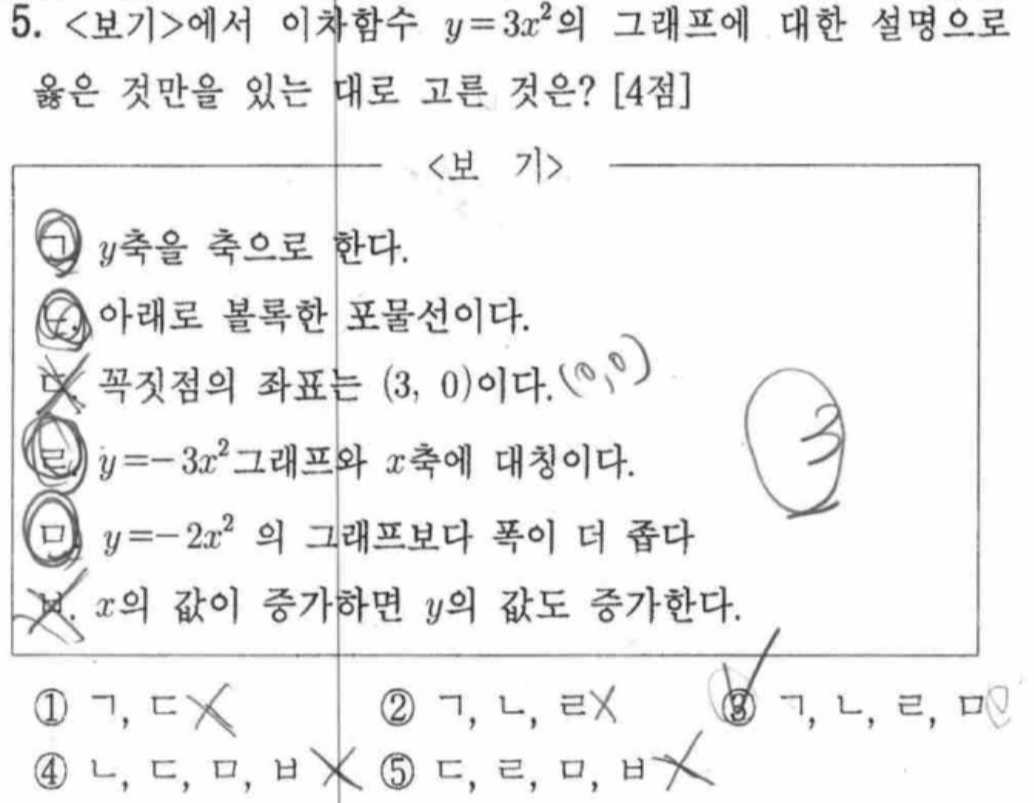 5. <보기>에서 이차함수 y=3x²의 그래프에 대한 설명으로
옳은 것만을 있는 대로 고른 것은? [4점]
<보 기>
ㄱ. y축을 축으로 한다.
ㄴ. 아래로 볼록한 포물선이다.
ㄷ. 꼭짓점의 좌표는 (3, 0)이다. (0,0)
ㄹ. y=-3x²그래프와 x축에 대칭이다.
ㅁ. y=-2x² 의 그래프보다 폭이 더 좁다
ㅂ. x의 값이 증가하면 y의 값도 증가한다.
① ㄱ, ㄷ ② ㄱ, ㄴ, ㄹ ③ ㄱ, ㄴ, ㄹ, ㅁ
④ ㄴ, ㄷ, ㅁ, ㅂ ⑤ ㄷ, ㄹ, ㅁ, ㅂ